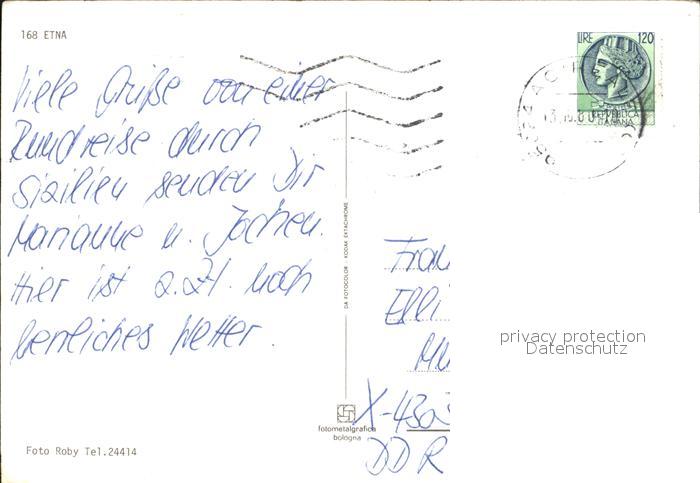 168 ETNA
Viele Grüße von einer
Rundreise durch
Sizilien senden Dir
Marianne u. Jochen.
Hier ist z.Zt. noch
herrliches Wetter.
Foto Roby Tel.24414
DA FOTOCOLOR - KODAK EKTACHROME
fotometalgrafica
bologna
LIRE 120
REPVBBLICA
ITALIANA
Frau
Elli
X-430
DDR
privacy protection
Datenschutz